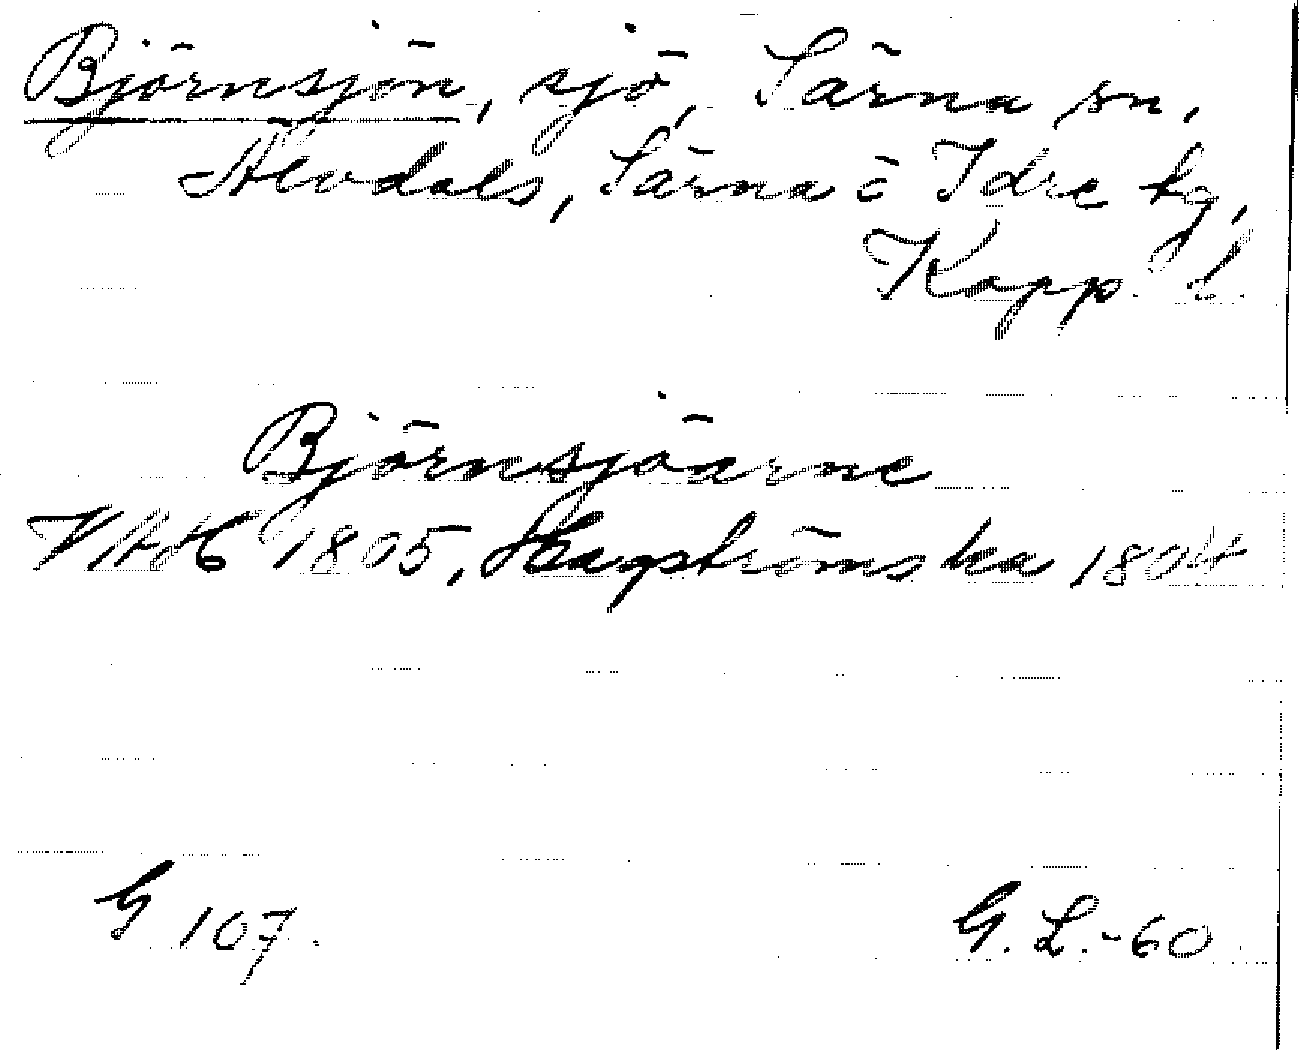 Björnsjön, sjö, Särna sn,
Älvdals, Särna o Idre tg,
Kopp. l.
Björnsjöarne
VAH 1805, Hagströmska 1804
G 107.
G. L.-60